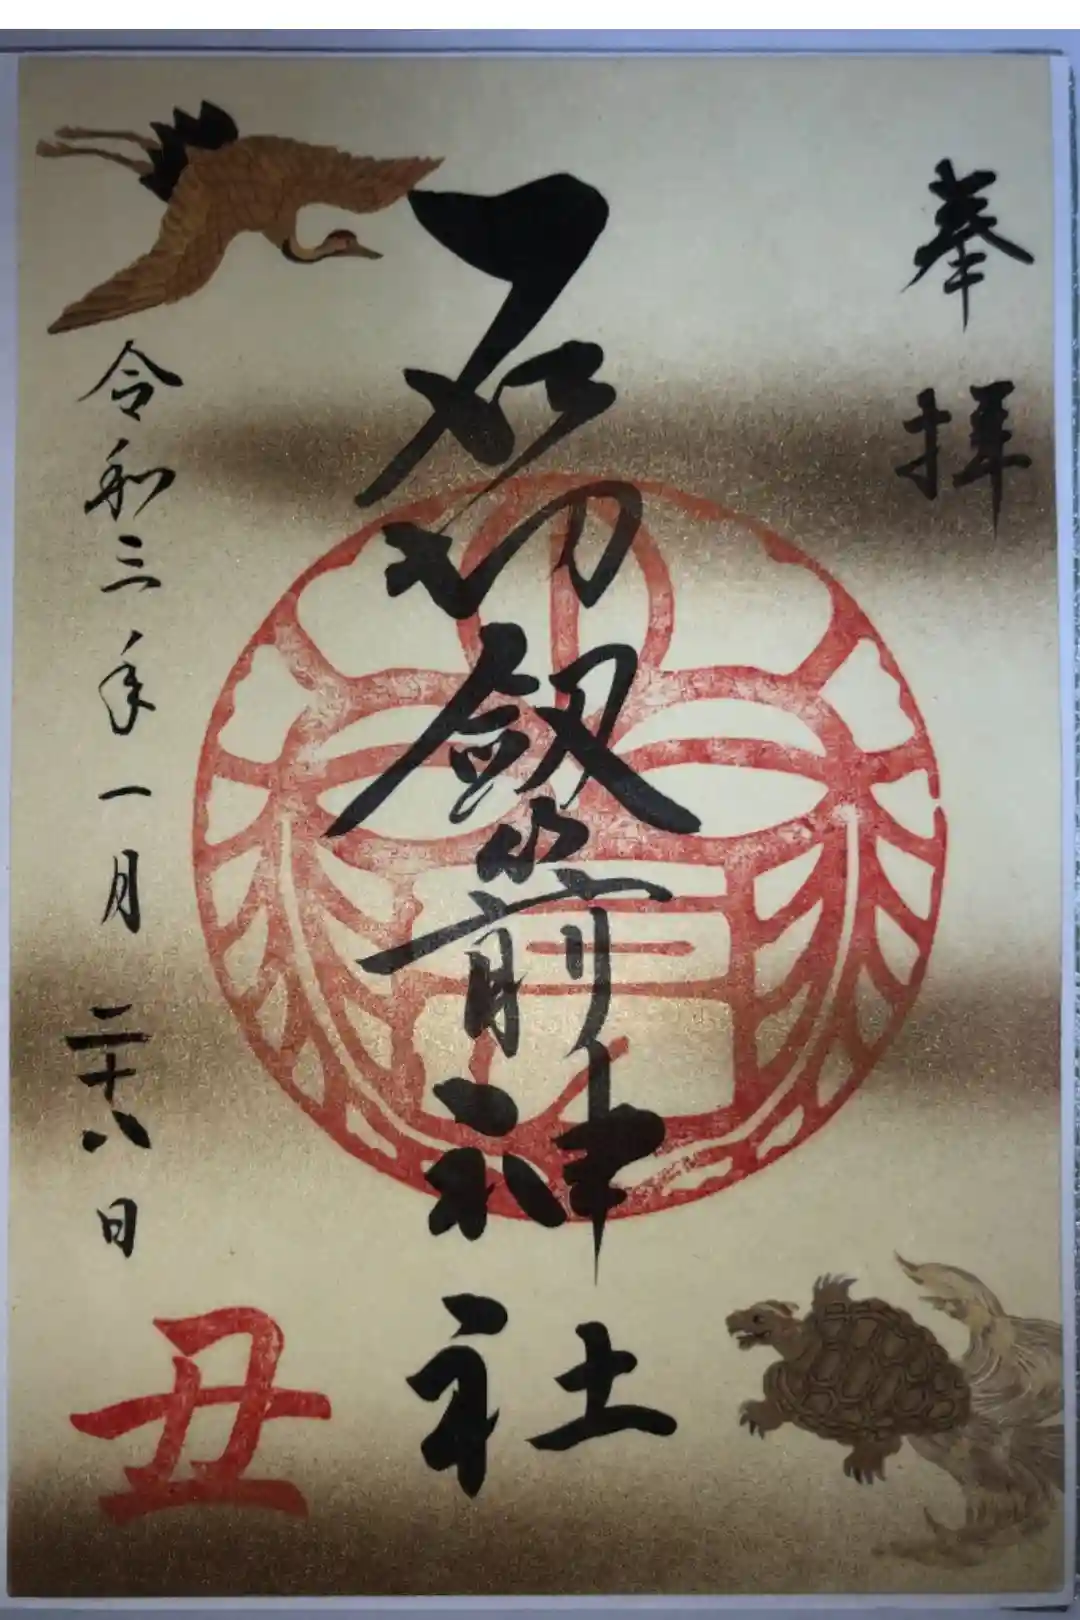 奉拝
石切劔箭神社
令和三年一月二十八日
丑